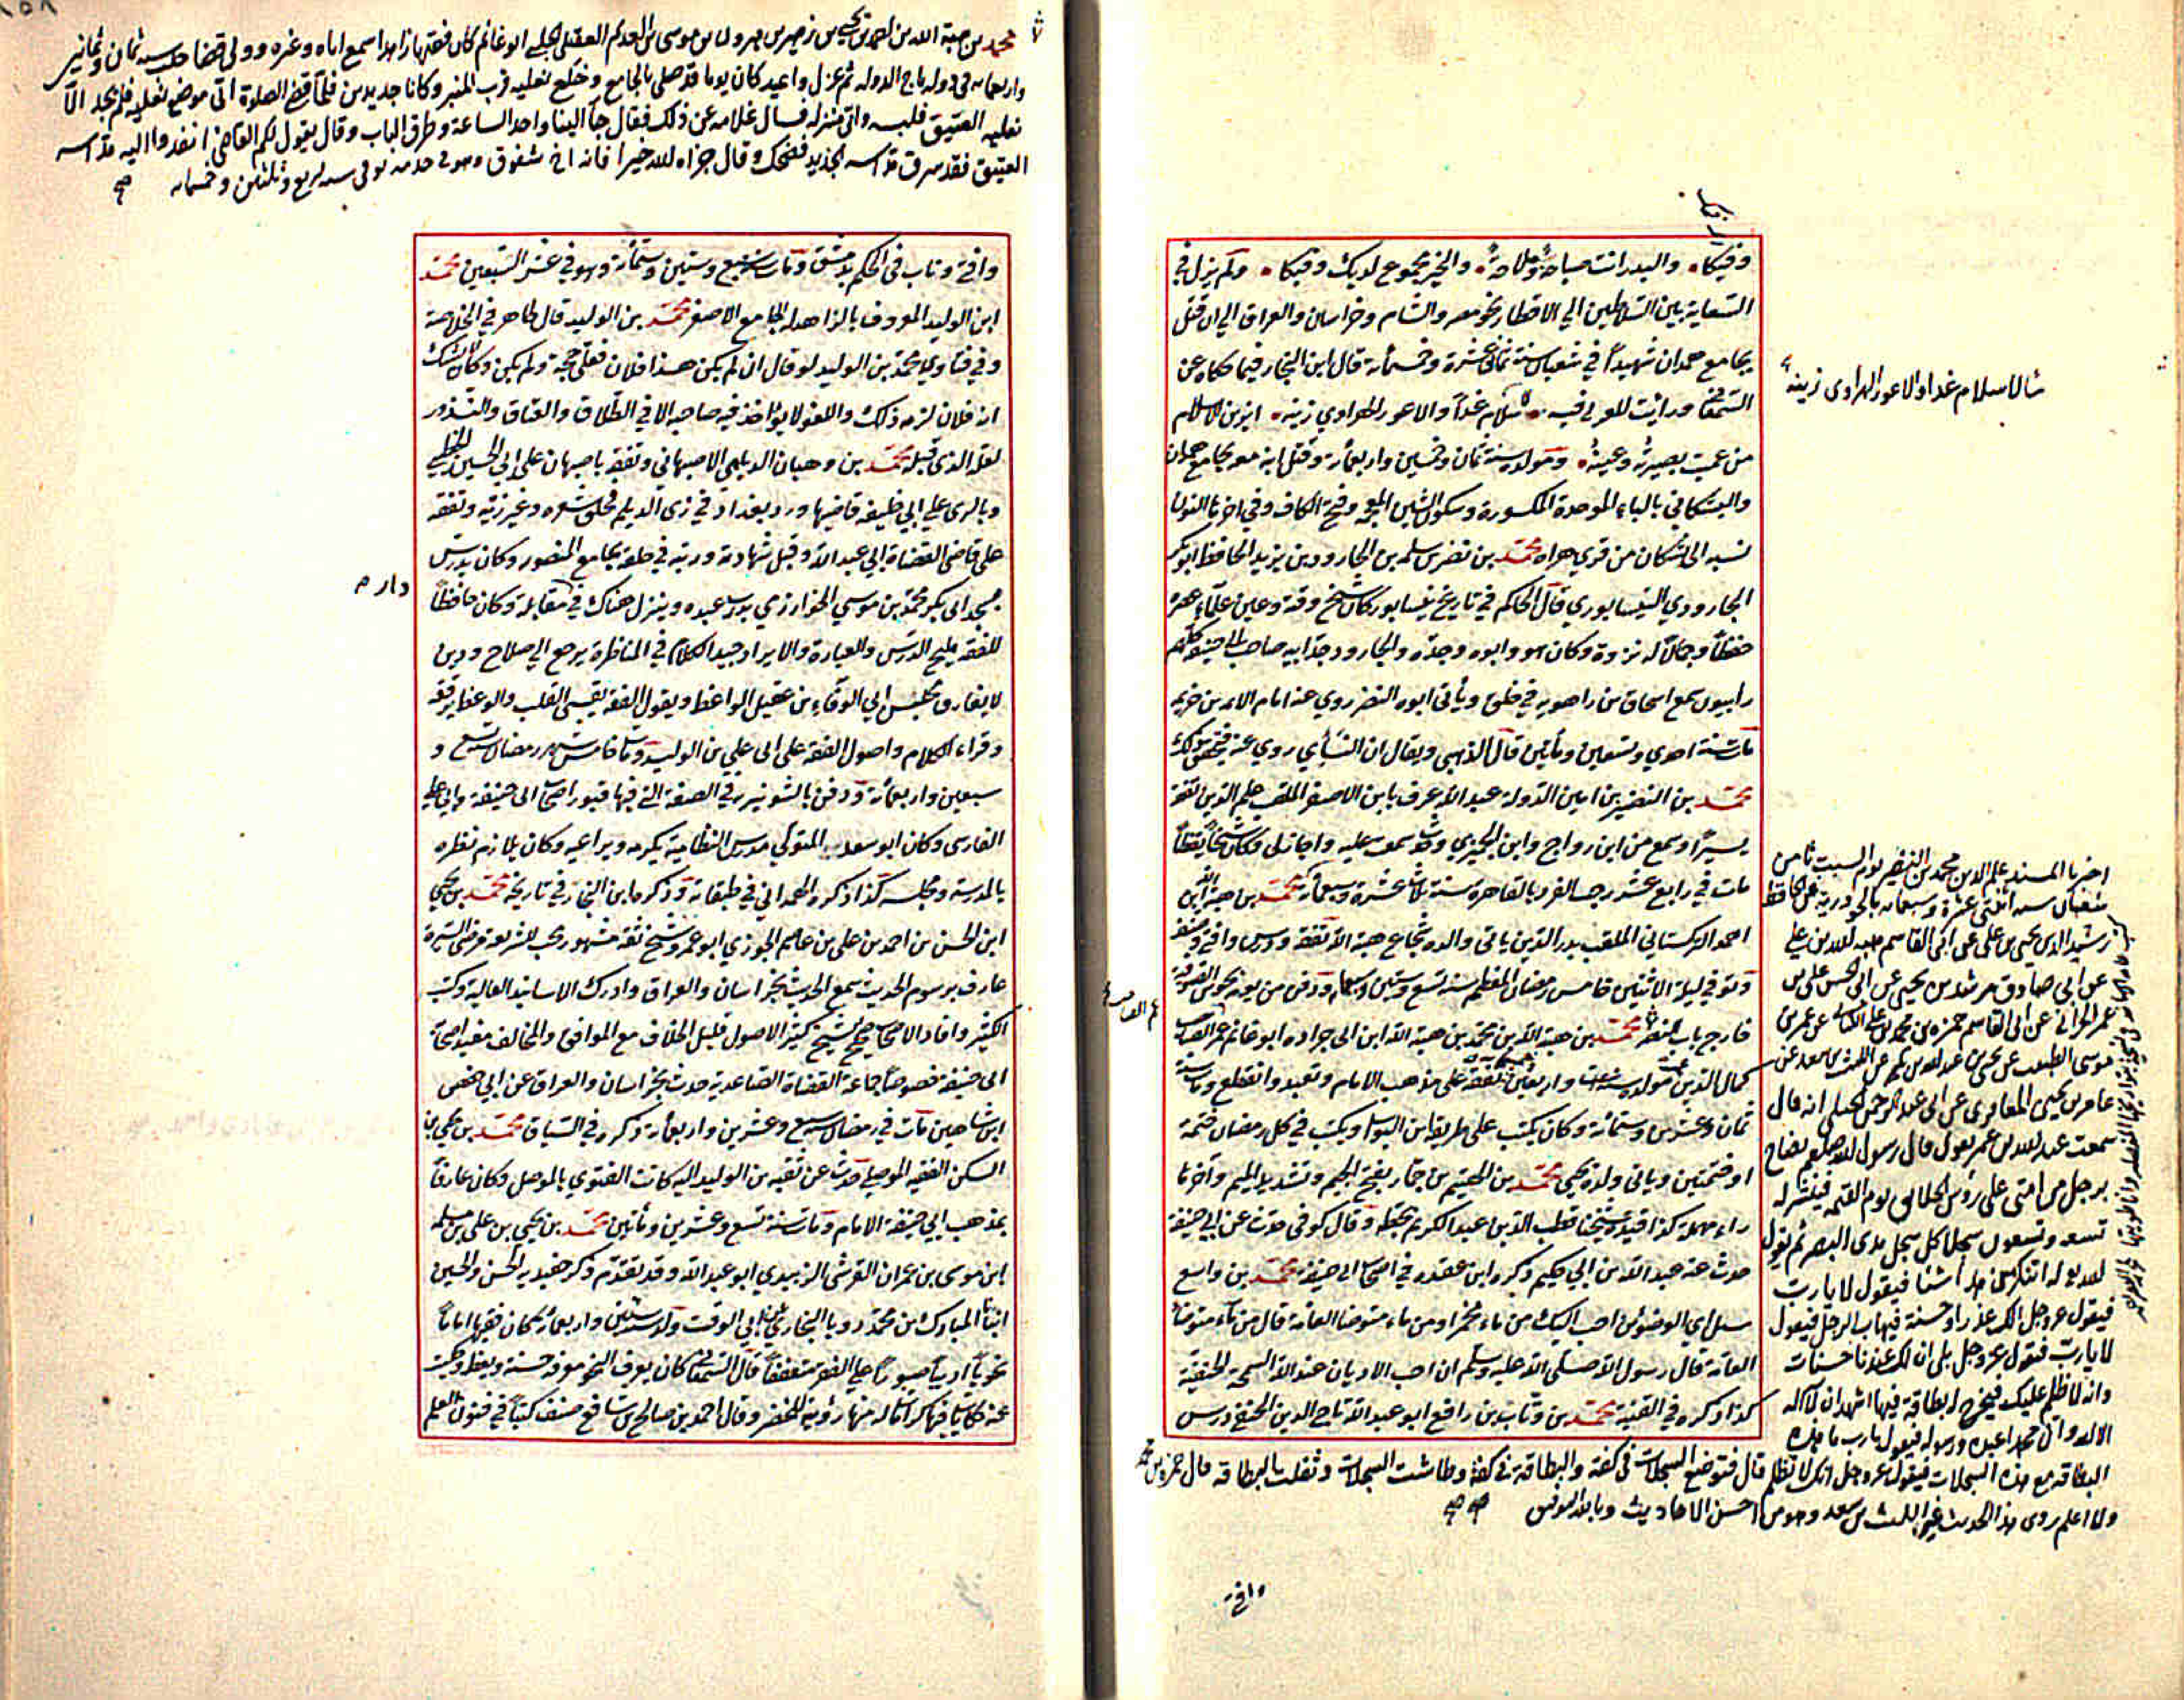 وفيكا والبدر انت صباحة وملاحة والخير مجموع لديك وفيكا ولم يزل في
السعاية بين السلاطين الي الاقطار نحو مصر والشام وخراسان والعراق الي ان قتل
بجامع همدان شهيداً في شعبان سنة ثماني عشرة وخمسمأة قال ابن النجار فيما حكاه عن
من عميت بصيرته وعينه ومولده سنة ثمان وخمسين واربعمأة وقتل ابنه معه بجامع همدان
والبشكاني بالباء الموحدة المكسورة وسكون الشين المعجمة وفتح الكاف وفي اخرها النون
نسبه الى بشكان من قري هراه محمد بن نضر بن سلمه بن الجارود بن يزيد الحافظ ابو بكر
الجارودي النيسابوري قال الحاكم في تاريخ نيسابور كان شيخ وقته وعين علماء عصره
حفظاً وجمالاً له ثروة وكان هو وابوه وجده والجارود جد ابيه صاحب ابي حنيفة كلهم
رابيون سمع اسحاق بن راهويه في خلق ويأتي ابوه النضر روي عنه امام الايمه بن خزيمه
مات سنة احدي وتسعين ومأتين قال الذهبي ويقال ان النسأي روي عنه
محمد بن النضير بن امين الدولة عبد الله عرف بابن الاصفر الملقب علم الدين تفقه
يسيراً وسمع من ابن رواج وابن الجميزي وقد سمعت عليه واجاز لي وكان شيخاً يقظاً
مات في رابع عشر رجب الفرد بالقاهرة سنة ثلاث عشرة وسبعمأة محمد بن هبة الله بن
احمد التركستاني الملقب بدر الدين ياتي والده شجاع هبة الله تفقه ودرس وافتي وصنف
وتوفي ليلة الاثنين خامس رمضان المعظم سنة تسع وستين وسبعمأة ودفن من يومه بحوش الصوفية
خارج باب النصر محمد بن هبة الله بن محمد بن هبة الله ابن ابي جراده ابو غانم عم الصاحب
كمال الدين مولده سنة واربعين تفقه على مذهب الامام وتعبد وانقطع ومات سنة
ثمان وعشرين وستمأة وكان يكتب على طريقة ابن البواب ويكتب في كل رمضان ختمة
او ختمتين وياتي ولده يحيي محمد بن الهيثم بن جمّار بفتح الجيم وتشديد الميم وآخرها
راء مهملة كذا قيده شيخنا قطب الدين عبد الكريم بخطه وقال كوفي حدث عن ابي حنيفة
حدث عنه عبد الله بن ابي حكيم ذكره ابن عقده في اصحاب ابي حنيفة محمد بن واسع
سئل اي الوضوئين احب اليك من ماء مخمر او من ماء متوضأ العامة قال من ماء متوضأ
العامة قال رسول الله صلى الله عليه وسلم ان احب الاديان عند الله السمحة الحنيفية
كذا ذكره في القنية محمد بن وثاب بن رافع ابو عبد الله تاج الدين الحنفي درس
شالاسلام غدا والاعور الهراوي زينه
اخبرنا المسند علم الدين محمد بن النضير يوم السبت ثامن
رشيد الدين يحيى بن علي عن ابي القاسم هبه الله بن علي
عن ابي صادق مرشد بن يحيى عن ابي الحسن علي بن
عمر الحراني عن ابي القاسم حمزه بن محمد بن علي الكناني عن عمر بن
عامر بن يحيى المعافري عن ابي عبد الرحمن الحبلي انه قال
سمعت عبد الله بن عمر يقول قال رسول الله صلعم يصاح
برجل من امتي على رؤس الخلايق يوم القيمه فينشر له
تسعه وتسعون سجلا كل سجل مدى البصر ثم يقول
الله له اتنكر من هذا شيئا فيقول لا يارب
فيقول عز وجل الك عذر او حسنة فيهاب الرجل فيقول
لا يارب فيقول عز وجل بلى ان لك عندنا حسنات
وانه لا ظلم عليك فيخرج له بطاقة فيها اشهد ان لا اله
الا الله وان محمدا عبده ورسوله فيقول يارب ما هذه
البطاقه مع هذه السجلات فيقول عز وجل انك لا تظلم قال فتوضع السجلات في كفه والبطاقة في كفه وطاشت السجلات وثقلت البطاقه قال حمزه بن محمد
ولا اعلم روى هذا الحديث غير الليث بن سعد وهو من احسن الاحاديث وبالله التوفيق
وافتى
محمد بن هبة الله بن احمد بن يحيى بن زهير بن هرون بن موسى بن العديم العقيلي الحلبي ابو غانم كان فقيها زاهدا سمع اباه وغيره وولي قضا حلب سنه ثمان وثمانين
واربعمايه في دوله تاج الدوله ثم عزل واعيد كان يوما قد صلى بالجامع وخلع نعليه قرب المنبر وكانا جديدين فلما قضى الصلاة اتى موضع نعليه فلم يجد الا
نعليه العتيق فلبسه واتى منزله فسال غلامه عن ذلك فقال جآ الينا واحد الساعة وطرق الباب وقال يقول لكم القاضي انفدوا اليه مداسه
العتيق فقد سرق مداسه الجديد فضحك وقال جزاه الله خيرا فانه شفوق وهو في حل منه توفي سنه اربع وثلثين وخمسمايه
وافتي وناب في الحكم بدمشق ومات سنة سبع وستين وستمأة وهو في عشر التسعين محمد
ابن الوليد المعروف بالزاهد له الجامع الاصغر محمد بن الوليد قال طاهر في الخلاصة
وفي فتاوي محمد بن الوليد لو قال ان لم يكن هذا فلان فعلي حجة ولم يكن وكان لا يشك
انه فلان لزمه ذلك واللغو لا يؤاخذ فيه صاحبه الا في الطلاق والعتاق والنذور
لعله الذي قبله محمد بن وهبان الديلمي الاصبهاني وتفقه باصبهان على ابي الحسين الخطيبي
وبالري علي ابي خليفه قاضيها ورد بغداد في زي الديلم فحلق شعره وغير زيه وتفقه
على قاضي القضاة ابي عبد الله وقبل شهادته ورتبه في حلقة بجامع المنصور وكان يدرس
بمسجد ابي بكر محمد بن موسي الخوارزمي بدرب عبده وينزل هناك في مقابله وكان حافظاً
دار م
للفقه مليح الدرس والعبارة والايراد جيد الكلام في المناظرة يرجع الي صلاح ودين
لا يفارق مجلس ابي الوفاء بن عقيل الواعظ ويقول الفقه يقسى القلب والوعظ يرققه
وقراء الكلام واصول الفقه على ابي علي بن الوليد ومات خامس شهر رمضان سنة تسع و
سبعين واربعمأة ودفن بالشونيزي في الصفة التي فيها قبور اصحاب ابي حنيفة وابي علي
الفارسي وكان ابو سعد المتولي مدرس النظامية يكرمه ويراعيه وكان يلازم نظره
بالمدرسة ومجلسه كذا ذكره الهمداني في طبقاته وذكره ابن النجار في تاريخه محمد بن يحيي
ابن الحسن بن احمد بن علي بن عاصم الجوزي ابو عمرو شيخ ثقة مشهور محب للشريعة مرضى السيرة
عارف برسوم الحديث سمع الحديث بخراسان والعراق وادرك الاسانيد العالية وكتب
الكثير وافاد الاصحاب صحيح النسخ كثير الاصول قليل الخلاف مع الموافق والمخالف مفيد اصحاب
ابي حنيفة خصوصاً جماعة القضاة الصاعدية حدث بخراسان والعراق عن ابي حفص
ابن شاهين مات في رمضان سنة سبع وعشرين واربعمأة ذكره في السياق محمد بن يحيي بن
السكن الفقيه الموصلي حدث عن بقيه بن الوليد اليه كانت الفتوي بالموصل وكان عارفاً
بمذهب ابي حنيفة الامام ومات سنة تسع وعشرين ومأتين محمد بن يحيي بن علي بن مسلم
ابن موسى بن عمران القرشي الزبيدي ابو عبد الله وقد تقدم ذكر حفيديه الحسن والحسين
ابنا المبارك بن محمد رويا البخاري عن ابي الوقت ولد سنة ستين واربعمأة كان فقيهاً اماماً
نحوياً اديباً صبوراً على الفقر متعففاً قال السمعاني كان يعرف النحو معرفة حسنة ويعظ وحكيت
عنه حكايات فيها كرامات له منها رؤيته للخضر وقال احمد بن صالح بن شافع صنف كتباً في فنون العلم